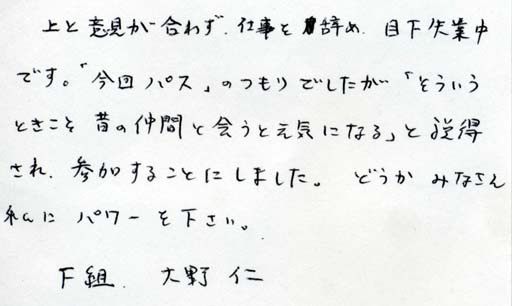 上と意見が合わず、仕事を辞め、目下失業中
です。「今回パス」のつもりでしたが「そういう
ときこそ昔の仲間と会うと元気になる」と説得
され、参加することにしました。どうかみなさん
私にパワーを下さい。
F組、大野仁